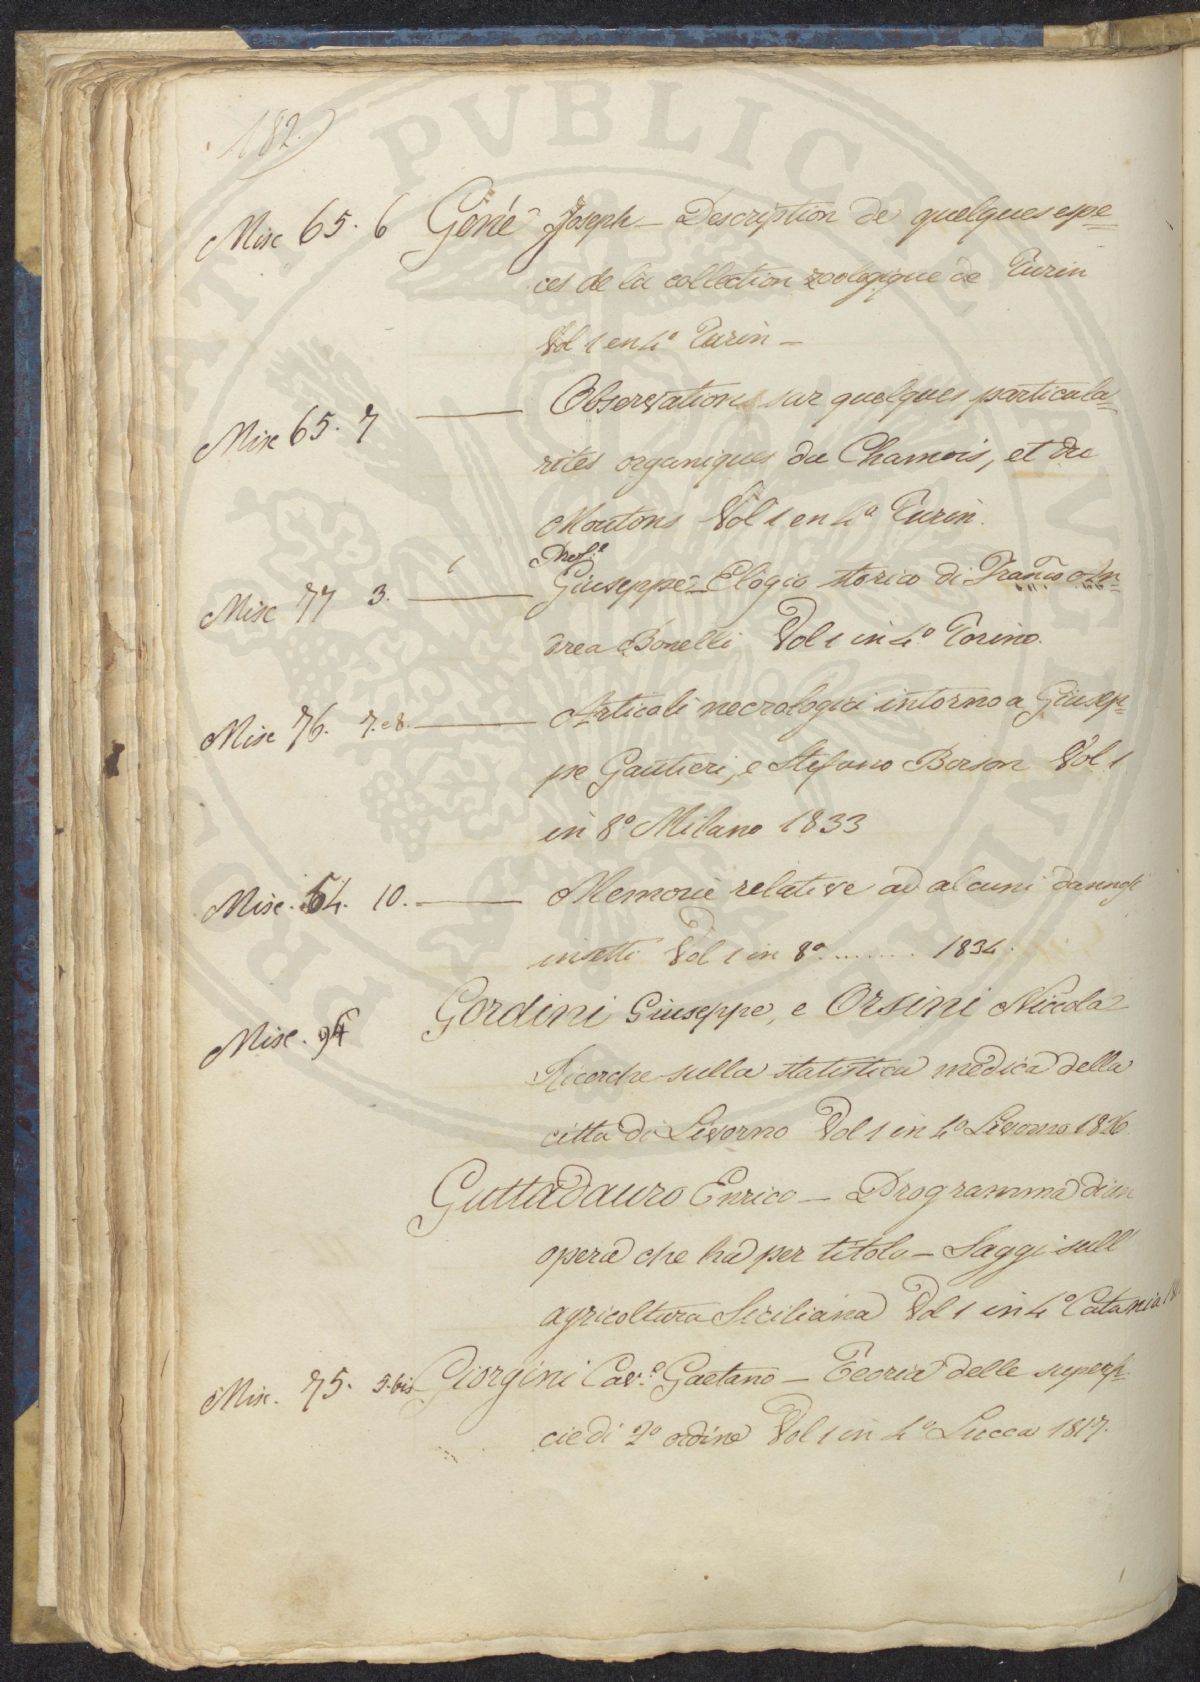 182.
Misc 65. 6 Géné Joseph – Description de quelques espe=
ces de la collection zoologique de Turin
Vol 1 en 4º Turin –
Misc 65. 7 ——— Observations sur quelques particula=
rites organiques du Chamois, et du
Moutons Vol 1 en 4º Turin.
Prof.e
Misc 77 3. ——— Giuseppe – Elogio storico di Franco An=
drea Bonelli Vol 1 in 4º Torino.
Misc 76. 7. e 8. ——— Articoli necrologici intorno a Giusep=
pe Gautieri, e Stefano Borson Vol. 1
in 8º Milano 1833
Misc. 54. 10. ——— Memorie relative ad alcuni dannosi
insetti Vol 1 in 8º ........ 1834.
Misc. 94 Gordini Giuseppe, e Orsini Niccola
Ricerche sulla statistica medica della
citta di Livorno Vol 1 in 4º Livorno 1836.
Guttadauro Enrico – Programma di un
opera che ha per titolo – Saggi sull'
agricoltura Siciliana Vol 1 in 4º Catania
Misc. 75. 5. bis Giorgini Cav.e Gaetano – Teoria delle superfi=
cie di 2º ordine Vol 1 in 4º Lucca 1817.
PVBLICE